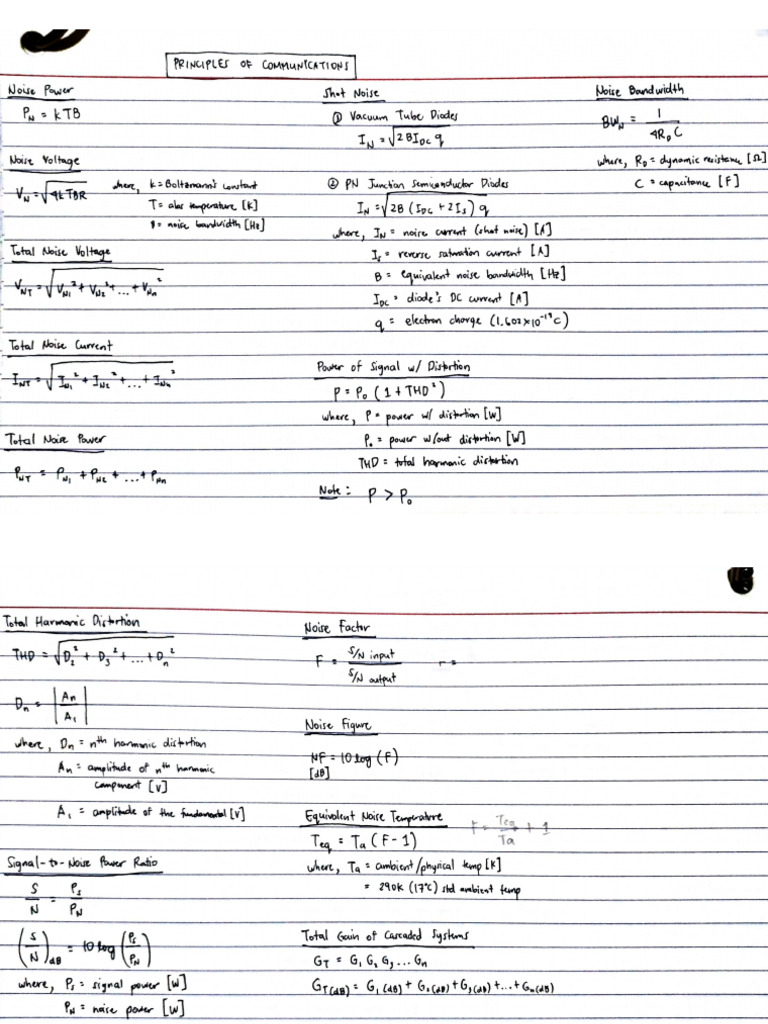 PRINCIPLES OF COMMUNICATIONS
Noise Power
P_N = kTB
Noise Voltage
V_N = √4kTBR where, k = Boltzmann's constant
T = abs temperature [K]
B = noise bandwidth [Hz]
Total Noise Voltage
V_NT = √V_N1² + V_N2² + ... + V_Nn²
Total Noise Current
I_NT = √I_N1² + I_N2² + ... + I_Nn²
Total Noise Power
P_NT = P_N1 + P_N2 + ... + P_Nn
Shot Noise
① Vacuum Tube Diodes
I_N = √2BI_DC q
② PN Junction Semiconductor Diodes
I_N = √2B (I_DC + 2I_s) q
where, I_N = noise current (shot noise) [A]
I_s = reverse saturation current [A]
B = equivalent noise bandwidth [Hz]
I_DC = diode's DC current [A]
q = electron charge (1.602x10⁻¹⁹C)
Power of Signal w/ Distortion
P = P₀ (1 + THD²)
where, P = power w/ distortion [W]
P₀ = power w/out distortion [W]
THD = total harmonic distortion
Note: P > P₀
Noise Bandwidth
BW_N = 1 / 4R_D C
where, R_D = dynamic resistance [Ω]
C = capacitance [F]
Total Harmonic Distortion
THD = √D₂² + D₃² + ... + D_n²
D_n = |A_n / A₁|
where, D_n = nth harmonic distortion
A_n = amplitude of nth harmonic
component [V]
A₁ = amplitude of the fundamental [V]
Signal-to-Noise Power Ratio
S/N = P_s/P_N
(S/N)_dB = 10 log (P_s/P_N)
where, P_s = signal power [W]
P_N = noise power [W]
Noise Factor
F = S/N input / S/N output
Noise Figure
NF = 10 log (F)
[dB]
Equivalent Noise Temperature
F = Teq/Ta + 1
Teq = Ta (F - 1)
where, Ta = ambient/physical temp [K]
= 290K (17°C) std ambient temp
Total Gain of Cascaded Systems
G_T = G₁ G₂ G₃ ... G_n
G_T(dB) = G₁(dB) + G₂(dB) + G₃(dB) + ... + G_n(dB)